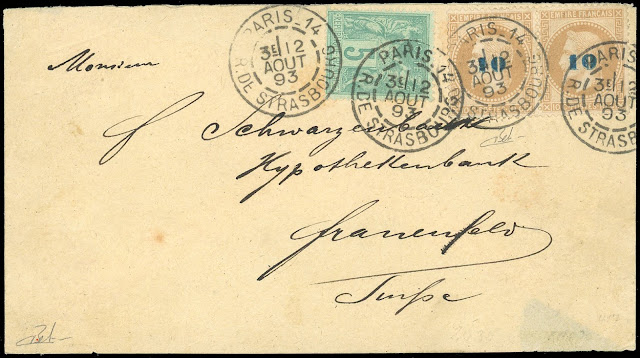 PARIS-14
3E 12
AOUT
93
R. DE STRASBOURG
5
PARIS-14
3E 12
AOUT
93
R. DE STRASBOURG
EMPIRE FRANÇAIS
10
PARIS-14
12
AOUT
93
DE STRASBOURG
EMPIRE FRANÇAIS
10
PARIS
3E 12
AOUT
93
R. DE STRASB
Monsieur
Schwarzenbach
Hypothekenbank
Frauenfeld
Suisse